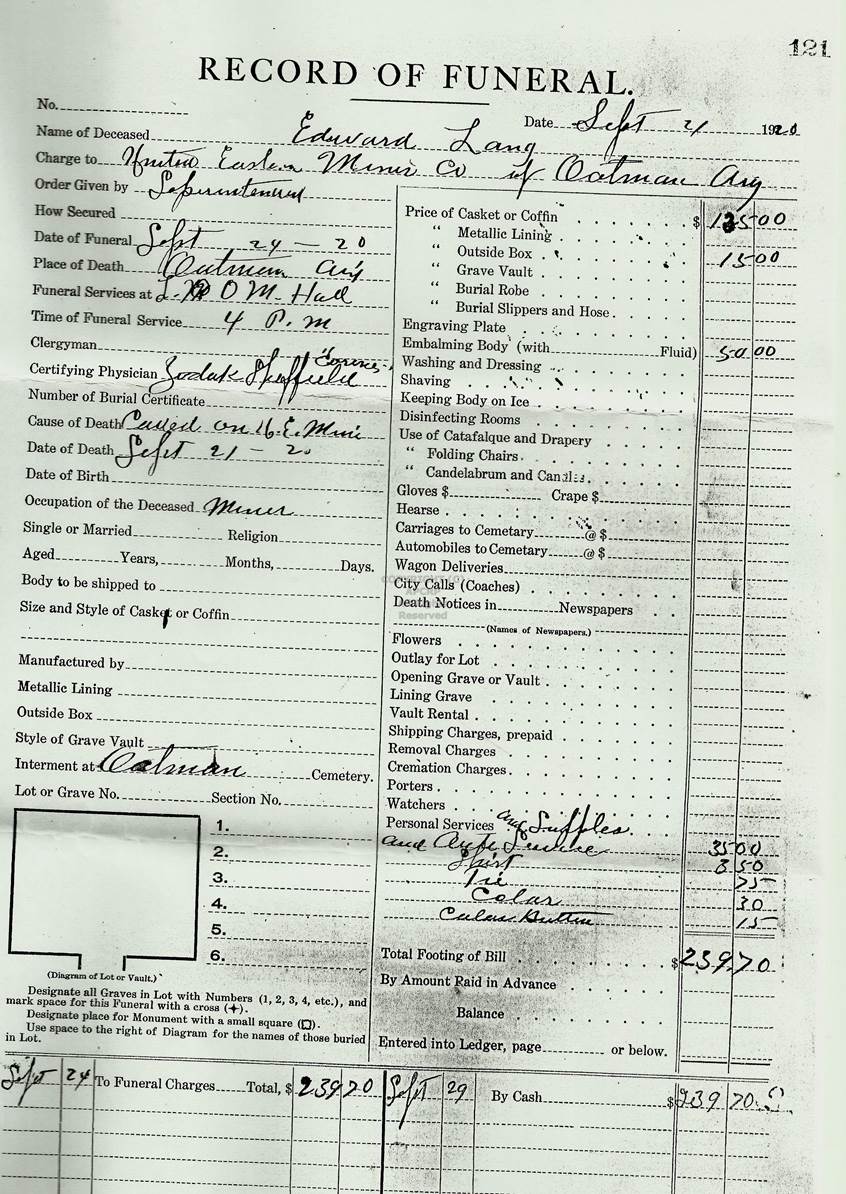 121
RECORD OF FUNERAL.
No.
Date Sept 21 1920
Name of Deceased Edward Lang
Charge to United Eastern Mines Co of Oatman Ariz
Order Given by Superintendent
How Secured
Date of Funeral Sept 24 - 20
Place of Death Oatman Ariz
Funeral Services at L. O O M. Hall
Time of Funeral Service 4 P. m
Clergyman
Certifying Physician Sheffield
Number of Burial Certificate
Cause of Death Caved on U. E. Mine
Date of Death Sept 21 - 20
Date of Birth
Occupation of the Deceased Miner
Single or Married Religion
Aged Years, Months, Days.
Body to be shipped to
Size and Style of Casket or Coffin
Manufactured by
Metallic Lining
Outside Box
Style of Grave Vault
Interment at Oatman Cemetery.
Lot or Grave No. Section No.
1.
2.
3.
4.
5.
6.
(Diagram of Lot or Vault.)
Designate all Graves in Lot with Numbers (1, 2, 3, 4, etc.), and
mark space for this Funeral with a cross (+).
Designate place for Monument with a small square (□).
Use space to the right of Diagram for the names of those buried
in Lot.
Price of Casket or Coffin $ 135 00
" Metallic Lining
" Outside Box 15 00
" Grave Vault
" Burial Robe
" Burial Slippers and Hose
Engraving Plate
Embalming Body (with Fluid) 50 00
Washing and Dressing
Shaving
Keeping Body on Ice
Disinfecting Rooms
Use of Catafalque and Drapery
" Folding Chairs
" Candelabrum and Candles
Gloves $ Crape $
Hearse
Carriages to Cemetary @ $
Automobiles to Cemetary @ $
Wagon Deliveries
City Calls (Coaches)
Death Notices in Newspapers
(Names of Newspapers.)
Flowers
Outlay for Lot
Opening Grave or Vault
Lining Grave
Vault Rental
Shipping Charges, prepaid
Removal Charges
Cremation Charges
Porters
Watchers
Personal Services and Supplies
and Auto Service 35 00
Shirt 3 50
Tie 75
Colar 30
Colar Button 15
Total Footing of Bill $ 239.70
By Amount Paid in Advance
Balance
Entered into Ledger, page or below.
Sept 24 To Funeral Charges Total, $ 239 70 Sept 29 By Cash $ 239 70
Reserved